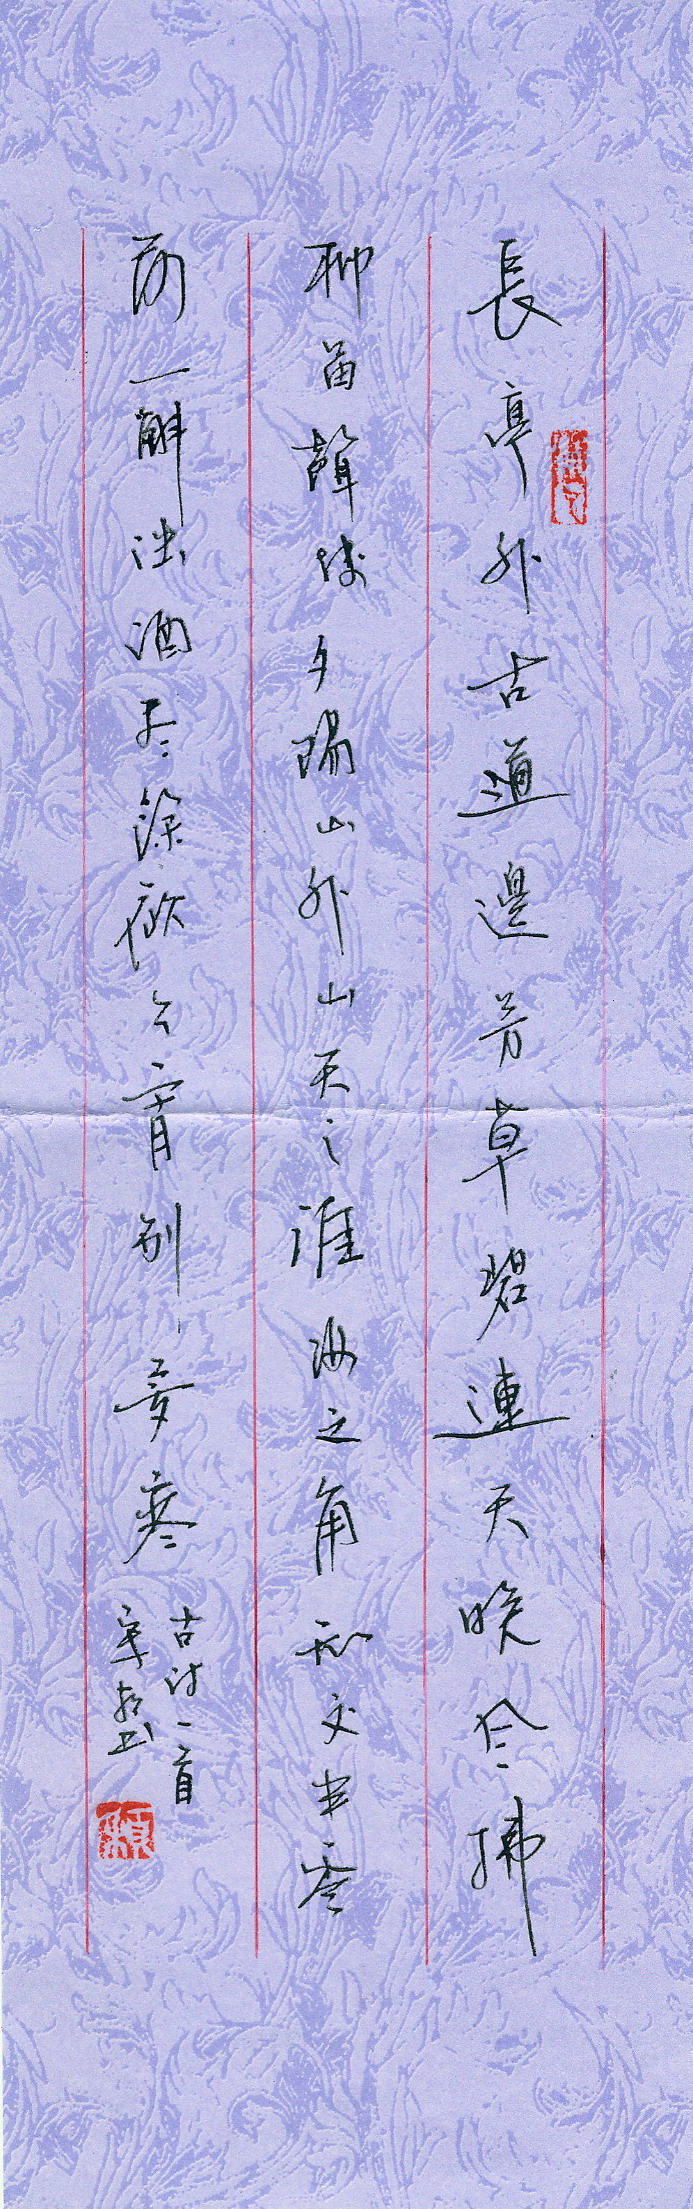 長亭外古道邊芳草碧連天晚風拂
柳笛聲殘夕陽山外山天之涯海之角知交半零
落一斛濁酒盡餘歡今宵別夢寒
古詩一首